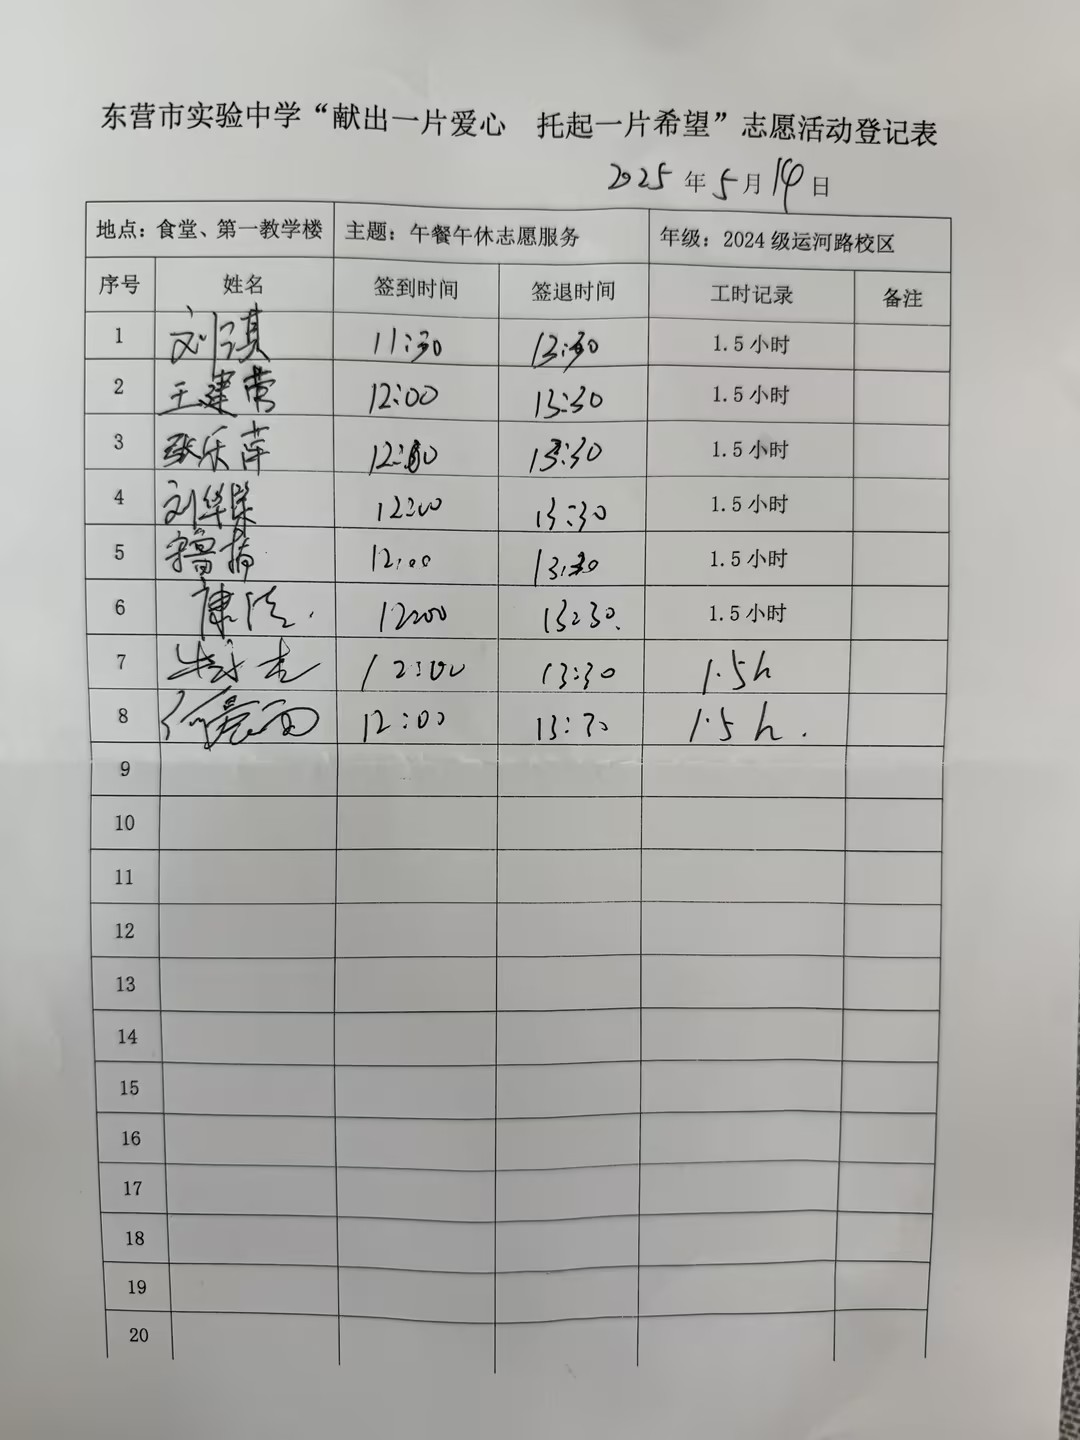 东营市实验中学“献出一片爱心 托起一片希望”志愿活动登记表
2025年5月14日
地点：食堂、第一教学楼 主题：午餐午休志愿服务 年级：2024级运河路校区
序号 姓名 签到时间 签退时间 工时记录 备注
1 刘淇 11:30 13:30 1.5小时
2 王建营 12:00 13:30 1.5小时
3 张乐萍 12:00 13:30 1.5小时
4 刘华荣 12:00 13:30 1.5小时
5 12:00 13:30 1.5小时
6 康洁. 12:00 13:30. 1.5小时
7 12:00 13:30 1.5h
8 12:00 13:30 1.5h.
9
10
11
12
13
14
15
16
17
18
19
20